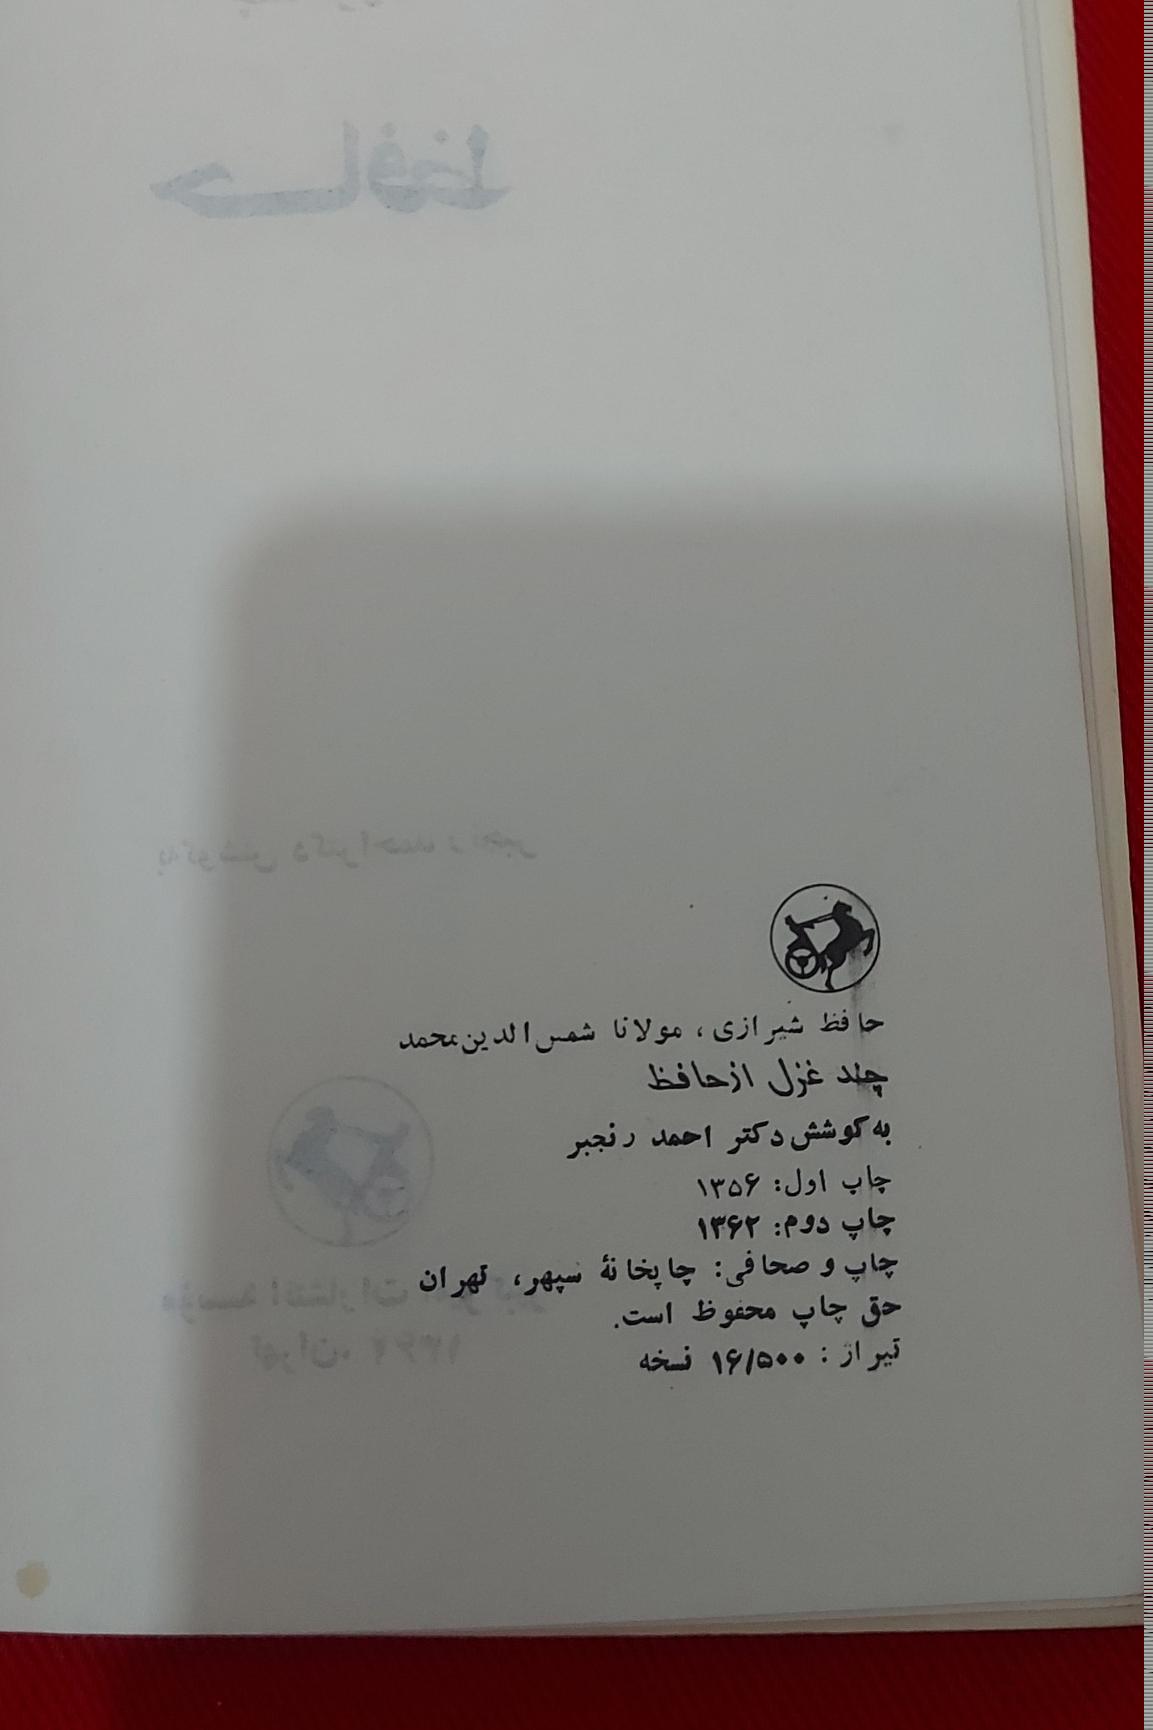 حافظ
به‌کوشش دکتر احمد رنجبر
حافظ شیرازی، مولانا شمس‌الدین‌محمد
چند غزل ازحافظ
به‌کوشش دکتر احمد رنجبر
چاپ اول: ۱۳۵۶
چاپ دوم: ۱۳۶۲
چاپ و صحافی: چاپخانهٔ سپهر، تهران
حق چاپ محفوظ است.
تیراژ: ۱۶/۵۰۰ نسخه